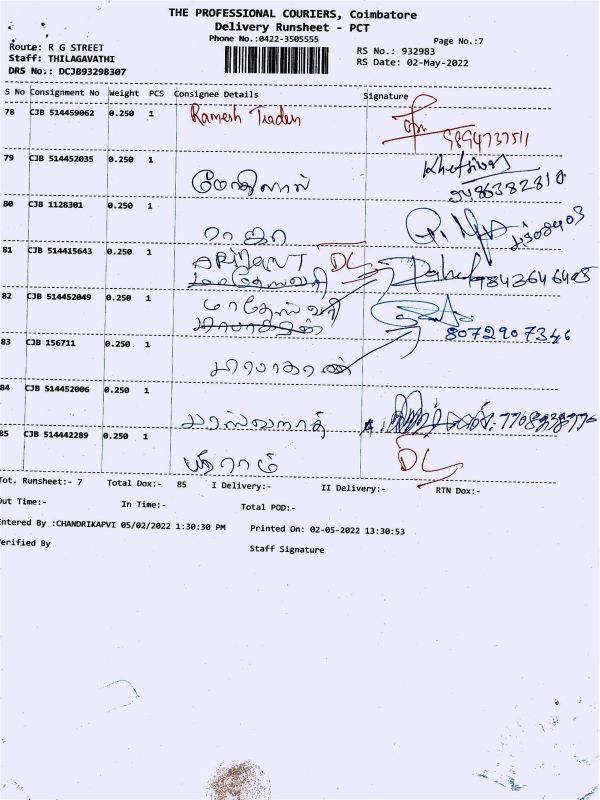 THE PROFESSIONAL COURIERS, Coimbatore
Delivery Runsheet - PCT
Phone No.:0422-3505555
Page No.:7
Route: R G STREET
Staff: THILAGAVATHI
DRS No.: DCJB93298307
RS No.: 932983
RS Date: 02-May-2022
S No Consignment No Weight PCS Consignee Details Signature
78 CJB 514459062 0.250 1 Ramesh Traders
9894737511
79 CJB 514452035 0.250 1
9486382810
80 CJB 1128301 0.250 1 ராஜா
81 CJB 514415643 0.250 1 ARIHANT DL
மாதேஸ்வரி
9843646485
82 CJB 514452049 0.250 1 மாதேஸ்வரி
பிரபாகரன்
8072907346
83 CJB 156711 0.250 1 பிரபாகரன்
84 CJB 514452006 0.250 1
85 CJB 514442289 0.250 1 ஸ்ரீராம் DL
Tot. Runsheet:- 7 Total Dox:- 85 I Delivery:- II Delivery:- RTN Dox:-
Out Time:- In Time:- Total POD:-
Entered By :CHANDRIKAPVI 05/02/2022 1:30:30 PM Printed On: 02-05-2022 13:30:53
Verified By Staff Signature